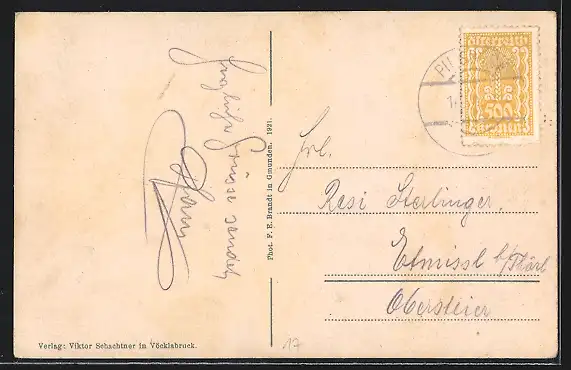 Herzliche Grüsse sendet
Hans
Phot. F. E. Brandt in Gmunden. 1921.
Verlag: Viktor Schachtner in Vöcklabruck.
17
österreich
500
Frl.
Resi Sterlinger.
Etmissl b/Thörl
Obersteier